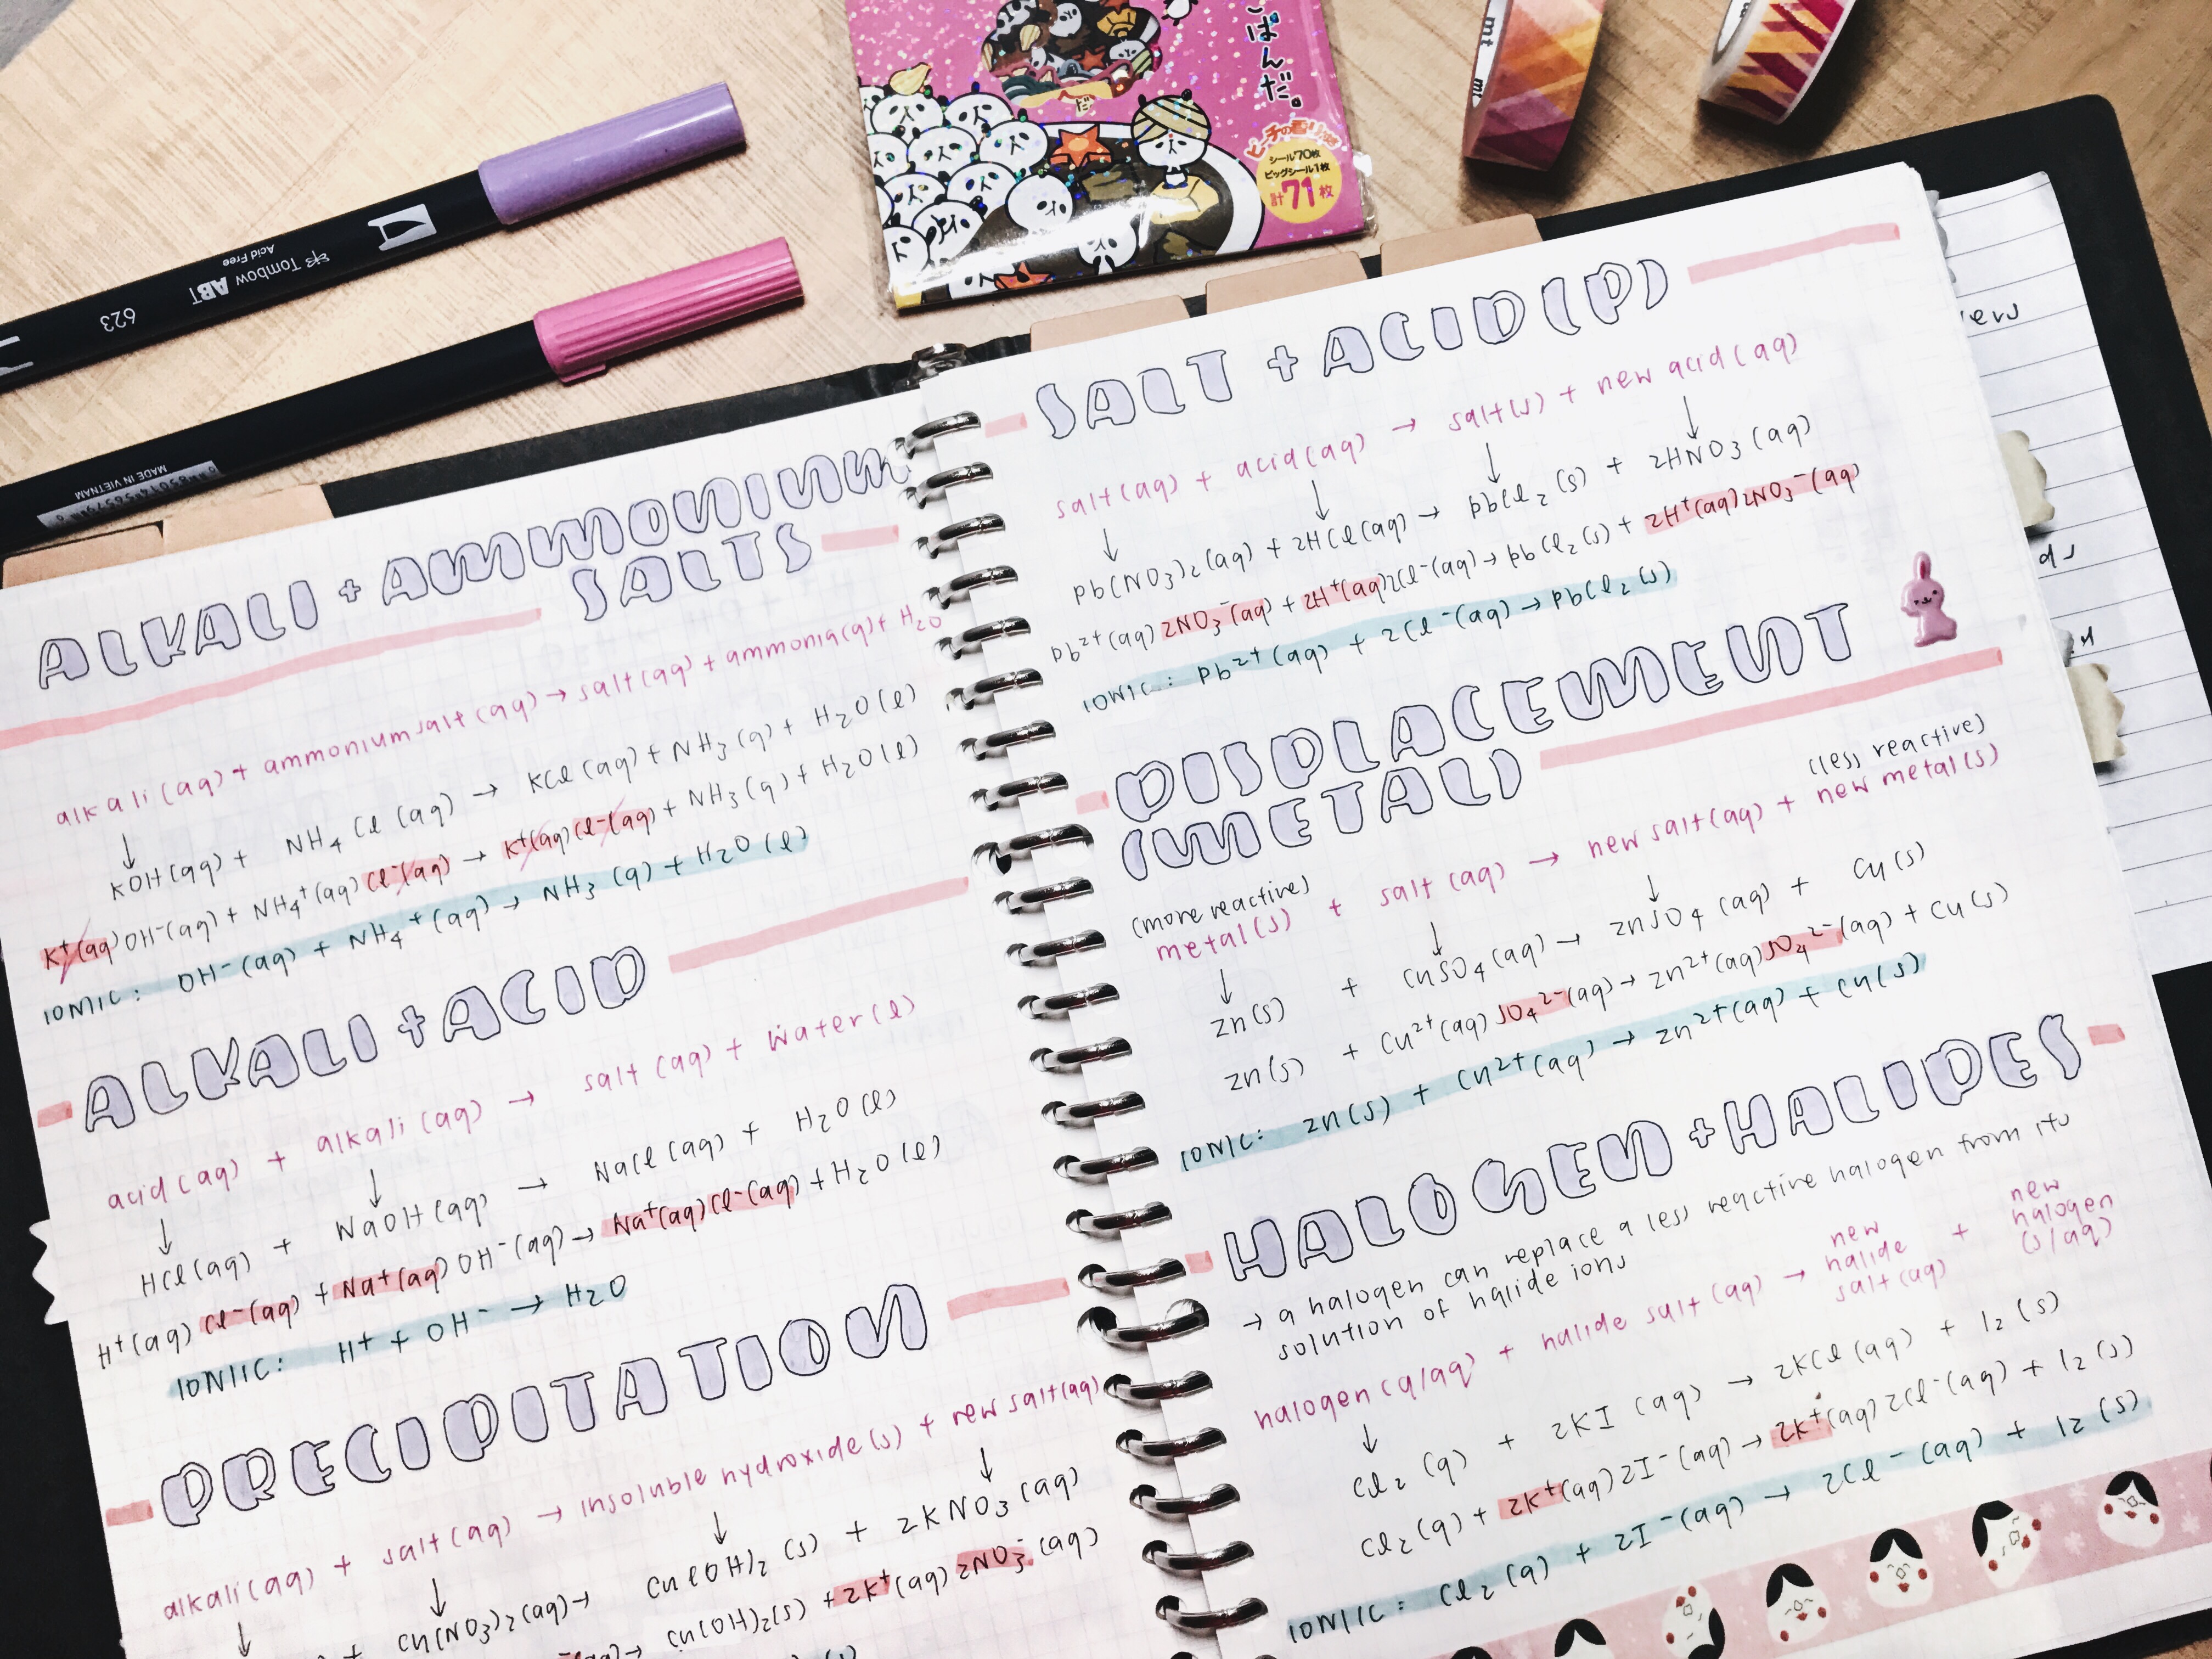 ぱんだ。
シール70枚
ビッグシール1枚
計71枚
mt
mt
Tombow ABT
Acid Free
623
MADE IN VIETNAM
ALKALI + AMMONIUM
SALTS
alkali(aq) + ammonium salt(aq) → salt(aq) + ammonia(g) + H2O
↓
KOH(aq) + NH4Cl(aq) → KCl(aq) + NH3(g) + H2O(l)
K+(aq)OH-(aq) + NH4+(aq)Cl-(aq) → K+(aq)Cl-(aq) + NH3(g) + H2O(l)
IONIC: OH-(aq) + NH4+(aq) → NH3(g) + H2O(l)
ALKALI + ACID
acid(aq) + alkali(aq) → salt(aq) + water(l)
↓ ↓
HCl(aq) + NaOH(aq) → NaCl(aq) + H2O(l)
H+(aq)Cl-(aq) + Na+(aq)OH-(aq) → Na+(aq)Cl-(aq) + H2O(l)
IONIC: H+ + OH- → H2O
PRECIPITATION
alkali(aq) + salt(aq) → insoluble hydroxide(s) + new salt(aq)
↓ ↓ ↓ ↓
+ Cu(NO3)2(aq) → Cu(OH)2(s) + 2KNO3(aq)
(aq) → Cu(OH)2(s) + 2K+(aq)2NO3-(aq)
SALT + ACID(P)
salt(aq) + acid(aq) → salt(s) + new acid(aq)
↓ ↓ ↓ ↓
Pb(NO3)2(aq) + 2HCl(aq) → PbCl2(s) + 2HNO3(aq)
Pb2+(aq)2NO3-(aq) + 2H+(aq)2Cl-(aq) → PbCl2(s) + 2H+(aq)2NO3-(aq)
IONIC: Pb2+(aq) + 2Cl-(aq) → PbCl2(s)
DISPLACEMENT
(METAL)
(more reactive) (less reactive)
metal(s) + salt(aq) → new salt(aq) + new metal(s)
↓ ↓ ↓
Zn(s) + CuSO4(aq) → ZnSO4(aq) + Cu(s)
Zn(s) + Cu2+(aq)SO42-(aq) → Zn2+(aq)SO42-(aq) + Cu(s)
IONIC: Zn(s) + Cu2+(aq) → Zn2+(aq) + Cu(s)
HALOGEN + HALIDES
→ a halogen can replace a less reactive halogen from its
solution of halide ions
halogen(g/aq) + halide salt(aq) → new halide salt(aq) + new halogen (s/aq)
↓
Cl2(g) + 2KI(aq) → 2KCl(aq) + I2(s)
Cl2(g) + 2K+(aq)2I-(aq) → 2K+(aq)2Cl-(aq) + I2(s)
IONIC: Cl2(g) + 2I-(aq) → 2Cl-(aq) + I2(s)